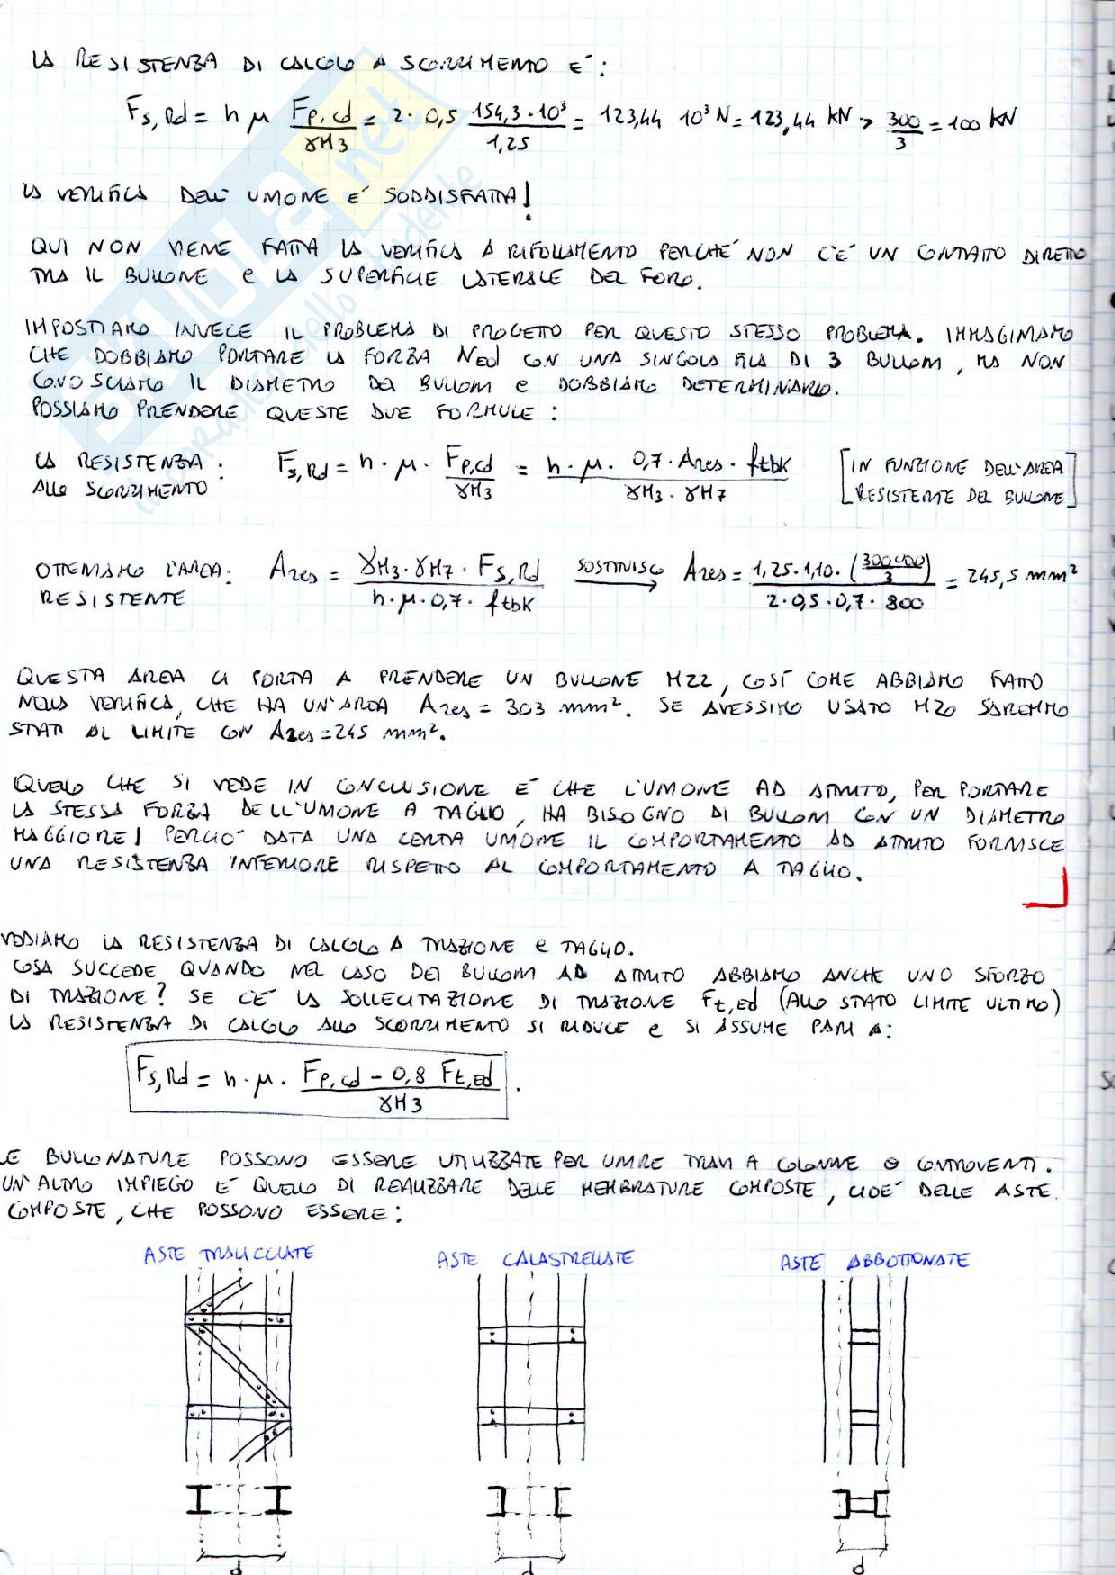 LA RESISTENZA DI CALCOLO A SCORRIMENTO E':
Fs,Rd = n μ Fp,cd / γM3 = 2 · 0,5 154,3 · 10³ / 1,25 = 123,44 10³ N = 123,44 kN > 300/3 = 100 kN
LA VERIFICA DELL'UNIONE E' SODDISFATTA!
QUI NON VIENE FATTA LA VERIFICA A RIFOLLAMENTO PERCHE' NON C'E' UN CONTATTO DIRETTO
TRA IL BULLONE E LA SUPERFICIE LATERALE DEL FORO.
IMPOSTIAMO INVECE IL PROBLEMA DI PROGETTO PER QUESTO STESSO PROBLEMA. IMMAGINIAMO
CHE DOBBIAMO PORTARE LA FORZA Ned CON UNA SINGOLA FILA DI 3 BULLONI, MA NON
CONOSCIAMO IL DIAMETRO DEI BULLONI E DOBBIAMO DETERMINARLO.
POSSIAMO PRENDERE QUESTE DUE FORMULE:
LA RESISTENZA : Fs,Rd = n · μ · Fp,cd / γM3 = n · μ · 0,7 · Ares · ftbk / γM3 · γM7 [IN FUNZIONE DELL'AREA
ALLO SCORRIMENTO RESISTENTE DEL BULLONE]
OTTENIAMO L'AREA: Ares = γM3 · γM7 · Fs,Rd / n · μ · 0,7 · ftbk SOSTITUISCO → Ares = 1,25 · 1,10 · (300000/3) / 2 · 0,5 · 0,7 · 800 = 245,5 mm²
RESISTENTE
QUESTA AREA CI PORTA A PRENDERE UN BULLONE M22, COSÌ COME ABBIAMO FATTO
NELLA VERIFICA, CHE HA UN'AREA Ares = 303 mm². SE AVESSIMO USATO M20 SAREMMO
STATI AL LIMITE CON Ares = 245 mm².
QUELLO CHE SI VEDE IN CONCLUSIONE E' CHE L'UNIONE AD ATTRITO, PER PORTARE
LA STESSA FORZA DELL'UNIONE A TAGLIO, HA BISOGNO DI BULLONI CON UN DIAMETRO
MAGGIORE! PERCIO' DATA UNA CERTA UNIONE IL COMPORTAMENTO AD ATTRITO FORNISCE
UNA RESISTENZA INFERIORE RISPETTO AL COMPORTAMENTO A TAGLIO.
VEDIAMO LA RESISTENZA DI CALCOLO A TRAZIONE E TAGLIO.
COSA SUCCEDE QUANDO NEL CASO DEI BULLONI AD ATTRITO ABBIAMO ANCHE UNO SFORZO
DI TRAZIONE? SE C'E' LA SOLLECITAZIONE DI TRAZIONE Ft,Ed (ALLO STATO LIMITE ULTIMO)
LA RESISTENZA DI CALCOLO ALLO SCORRIMENTO SI RIDUCE E SI ASSUME PARI A:
Fs,Rd = n · μ · Fp,cd - 0,8 Ft,Ed / γM3 .
LE BULLONATURE POSSONO ESSERE UTILIZZATE PER UNIRE TRAVI A COLONNE O CONTROVENTI.
UN'ALTRO IMPIEGO E' QUELLO DI REALIZZARE DELLE MEMBRATURE COMPOSTE, CIOE' DELLE ASTE
COMPOSTE, CHE POSSONO ESSERE:
ASTE TRALICCIATE ASTE CALASTRELLATE ASTE ABBOTTONATE
d d d